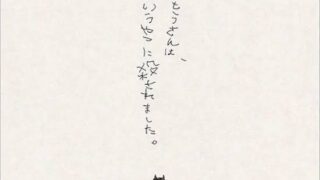 もうさんは、
いうやつに殺されました。